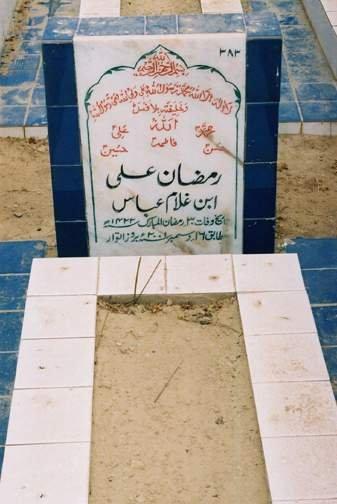 ۳۸۳
بسم اللہ الرحمن الرحیم
لا الہ الا اللہ محمد رسول اللہ علی ولی اللہ وصی رسول اللہ
وخلیفتہ بلا فصل
محمد اللہ علی
حسن فاطمہ حسین
رمضان علی
ابن غلام عباس
تاریخ وفات ۳۰ رمضان المبارک ۱۴۲۲ھ
مطابق ۱۶ دسمبر ۲۰۰۱ء بروز اتوار